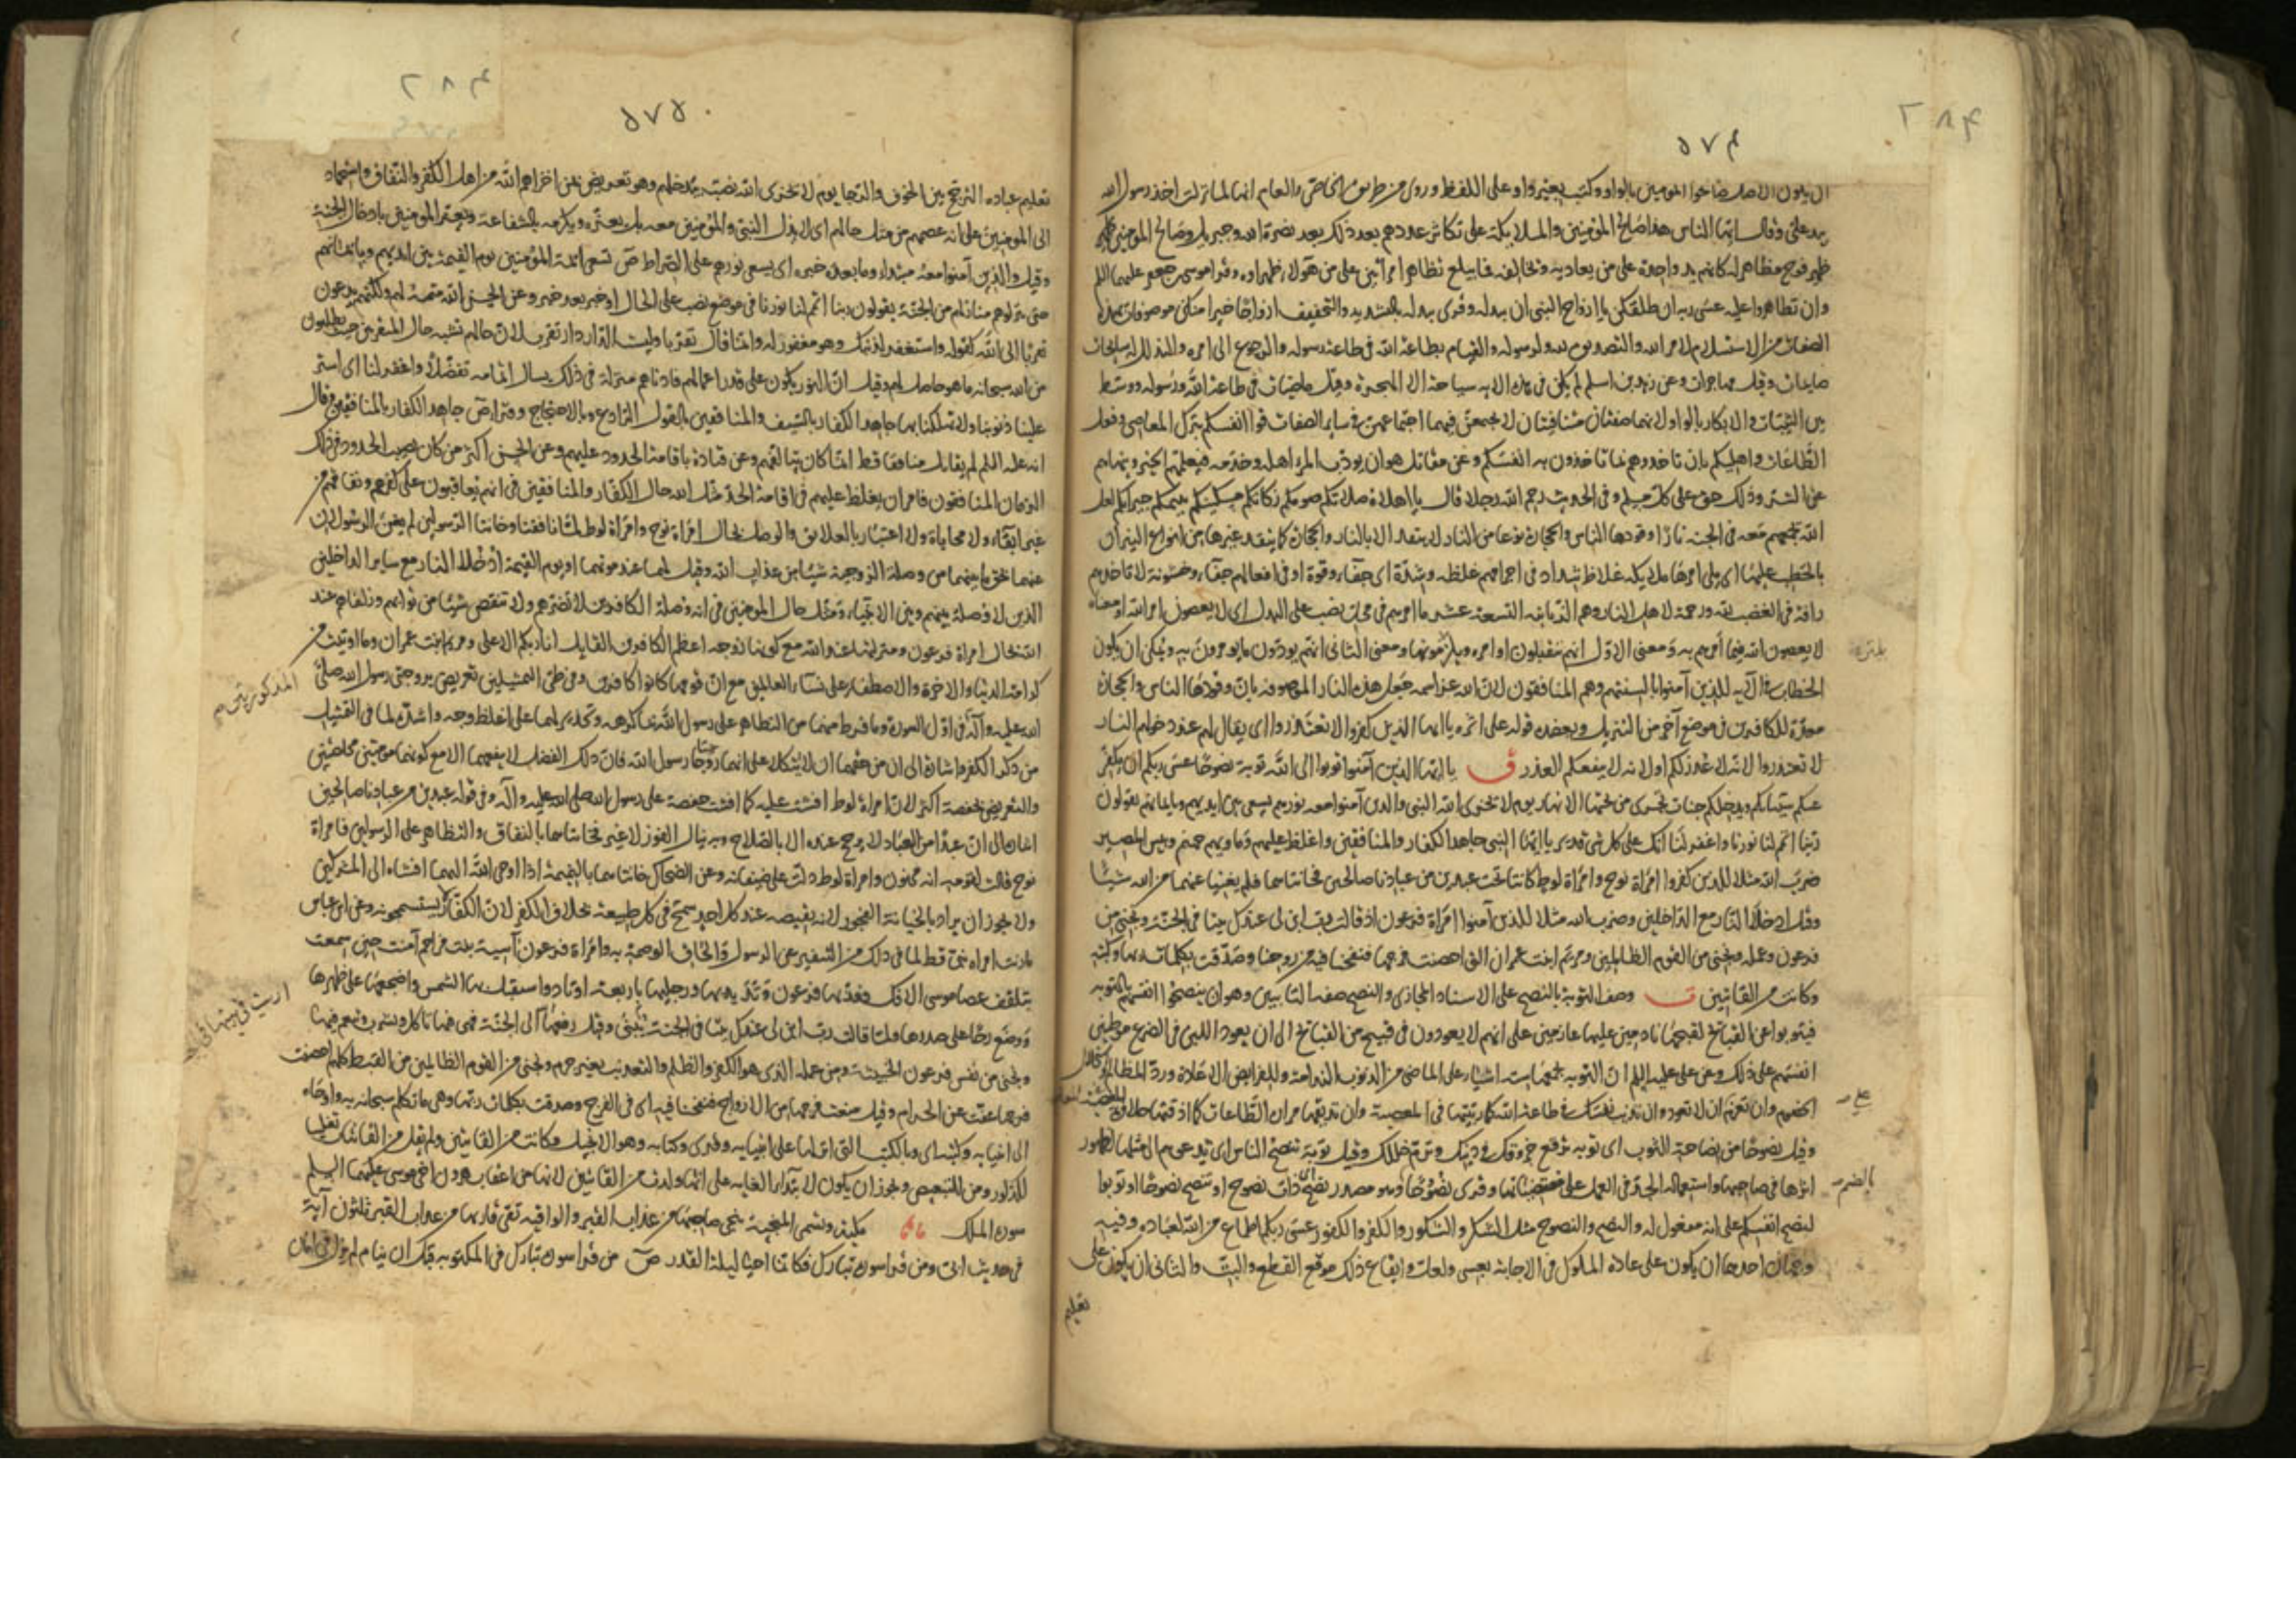 ٢٨٤
٥٧٤
ان يكون الاصل صالحوا المومنين بالواو وكتب بغير واو على اللفظ وروى من طريق الخاص والعام انها لما نزلت اخذ رسول الله
بيد على وقال ايها الناس هذا صالح المؤمنين والملائكة على تكاثر عددهم بعد ذلك بعد نصرة الله وجبريل وصالح المومنين ظهير
فوج مظاهر له كانهم يد واحدة على من يعاديه ويخالفه فما يبلغ تظاهر امراتين على من هؤلاء ظهراؤه وقرا موسى بن جعفر عليهما السلم
وان تظاهروا عليه عسى ربه ان طلقكن يا ازواج النبى ان يبدله وقرى يبدله بالتشديد والتخفيف ازواجا خيرا منكن موصوفات بهذه
الصفات من الاستسلام لامر الله والتصديق لله ولرسوله والقيام بطاعة الله فى طاعة رسوله والرجوع الى امره والتذلل له سايحات
صايمات وقيل مهاجرات وعن زيد بن اسلم لم يكن فى هذه الامة سياحة الا الهجرة وقيل ماضيات فى طاعة الله ورسوله ووسط
بين الثيبات والابكار بالواو لانهما صفتان متنافيتان لا يجتمعن فيهما اجتماعهن فى ساير الصفات قوا انفسكم بترك المعاصى وفعل
الطاعات واهليكم بان تاخذوهم بما تاخذون به انفسكم وعن مقاتل هو ان يودب المرء اهله وخدمه فيعلمهم الخير وينهاهم
عن الشر وذلك حق على كل مسلم وفى الحديث رحم الله رجلا قال يا اهلاه صلاتكم صومكم زكاتكم مسكينكم يتيمكم جيرانكم لعل
الله يجمعهم معه فى الجنة نارا وقودها الناس والحجارة نوعا من النار لا يتقد الا بالناس والحجارة كما يتقد غيرها من انواع النيران
بالحطب عليها اى يلى امرها ملائكة غلاظ شداد فى اجرامهم غلظة وشدة اى جفاء وقوة او فى افعالهم جفاء وخشونة لا تاخذهم
رافة فى الغضب لله ورحمة لاهل النار وهم الزبانية التسعة عشر ما امرهم فى محل نصب على البدل اى لا يعصون امر الله او معناه
لا يعصون الله فيما امرهم به ومعنى الاول انهم يتقبلون اوامره ويلتزمونها ومعنى الثانى انهم يودون ما يومرون به ويمكن ان يكون
الخطاب فى الآية للذين آمنوا بالسنتهم وهم المنافقون لان الله عز اسمه جعل هذه النار الموصوفة بان وقودها الناس والحجارة
معدة للكافرين فى موضع آخر من التنزيل ويعضده قوله على اثره يا ايها الذين كفروا لا تعتذروا اى يقال لهم عند دخولهم النار
لا تعتذروا لانه لا عذر لكم او لانه لا ينفعكم العذر ق يا ايها الذين آمنوا توبوا الى الله توبة نصوحا عسى ربكم ان يكفر
عنكم سيئاتكم ويدخلكم جنات تجرى من تحتها الانهار يوم لا يخزى الله النبى والذين آمنوا معه نورهم يسعى بين ايديهم وبايمانهم يقولون
ربنا اتمم لنا نورنا واغفر لنا انك على كل شى قدير يا ايها النبى جاهد الكفار والمنافقين واغلظ عليهم وماويهم جهنم وبيس المصير
ضرب الله مثلا للذين كفروا امراة نوح وامراة لوط كانتا تحت عبدين من عبادنا صالحين فخانتاهما فلم يغنيا عنهما من الله شيئا
وقيل ادخلا النار مع الداخلين وضرب الله مثلا للذين آمنوا امراة فرعون اذ قالت رب ابن لى عندك بيتا فى الجنة ونجنى من
فرعون وعمله ونجنى من القوم الظالمين ومريم ابنت عمران التى احصنت فرجها فنفخنا فيه من روحنا وصدقت بكلمات ربها وكتبه
وكانت من القانتين ت وصف التوبة بالنصح على الاسناد المجازى والنصح صفة التائبين وهو ان ينصحوا انفسهم بالتوبة
فيتوبوا عن القبائح لقبحها نادمين عليها عازمين على انهم لا يعودون فى قبيح من القبائح الى ان يعود اللبن فى الضرع موطنين
انفسهم على ذلك وعن على عليه السلم ان التوبة يجمعها ستة اشياء على الماضى من الذنوب الندامة وللفرايض الاعادة ورد المظالم واستحلال
الخصوم وان تعزم ان لا تعود وان تذيب نفسك فى طاعة الله كما ربيتها فى المعصية وان تذيقها مرارة الطاعات كما اذقتها حلاوة المعصية
وقيل نصوحا من نصاحة الثوب اى توبة ترفع خروقك فى دينك وترم خللك وقيل توبة تنصح الناس اى تدعوهم الى مثلها لظهور
اثرها فى صاحبها واستعماله الجد فى العمل على مقتضياتها وقرى نصوحا وهو مصدر نصح اى ذات نصوح او تنصح نصوحا او توبوا
لنصح انفسكم على انه مفعول له والنصح والنصوح مثل الشكر والشكور والكفر والكفور عسى ربكم اطماع من الله لعباده وفيه
وجهان احدهما ان يكون على عادة الملوك فى الاجابة بعسى ولعل وايقاع ذلك موقع القطع والبت والثانى ان يكون على
تعليم
٢٨٤
٥٧٥
تعليم عباده الترجح بين الخوف والرجاء يوم لا يخزى الله نصبه بيدخلكم وهو تعريض بمن اخزاهم الله من اهل الكفر والنفاق واستحماد
الى المومنين على انه عصمهم من مثل حالهم اى لا يذل النبى والمؤمنين معه بل يعزه ويكرمه بالشفاعة ويعز المومنين بادخال الجنة
وقيل والذين آمنوا معه مبتدا وما بعده خبره اى يسعى نورهم على الصراط ص تسعى ائمة المؤمنين يوم القيمة بين ايديهم وبايمانهم
حتى ينزلوهم منازلهم من الجنة يقولون ربنا اتمم لنا نورنا فى موضع نصب على الحال او خبر بعد خبر وعن الحسن الله متمه لهم ولكنهم يدعون
تقربا الى الله كقوله واستغفر لذنبك وهو مغفور له وانما قال تقربا وليست الدار دار تقرب لان حالهم تشبه حال المتقربين حيث يطلبون
من الله سبحانه ما هو حاصل لهم وقيل ان النور يكون على قدر اعمالهم فادناهم منزلة فى ذلك يسال اتمامه تفضلا واغفر لنا اى استر
علينا ذنوبنا ولا تهلكنا بها جاهد الكفار بالسيف والمنافقين بالقول الرادع وبالاحتجاج وقرا ص جاهد الكفار بالمنافقين وقال
انه عليه السلم لم يقاتل منافقا قط انما كان يتالفهم وعن قتادة باقامة الحدود عليهم وعن الحسن اكثر من كان يصيب الحدود فى ذلك
الزمان المنافقون فامر ان يغلظ عليهم فى اقامة الحد مثل الله حال الكفار والمنافقين فى انهم يعاقبون على كفرهم ونفاقهم من
غير ابقاء ولا محاباة ولا اعتبار بالعلايق والوصل بحال امراة نوح وامراة لوط لما نافقتا وخانتا الرسولين لم يغن الرسولان
عنهما بحق ما بينهما من وصلة الزوجية شيئا من عذاب الله وقيل لهما عند موتهما او يوم القيمة ادخلا النار مع ساير الداخلين
الذين لا وصلة بينهم وبين الانبياء ومثل حال المومنين فى ان وصلة الكافرين لا تضرهم ولا تنقص شيئا من ثوابهم وزلفاهم عند
الله بحال امراة فرعون ومنزلتها عند الله مع كونها زوجة اعظم الكافرين القايل انا ربكم الاعلى ومريم ابنت عمران وما اوتيت من
كرامة الدنيا والاخرة والاصطفاء على نساء العالمين مع ان قومها كانوا كافرين وفى طى التمثيلين تعريض بزوجتى رسول الله صلى
الله عليه وآله فى اول السورة وما فرط منهما من التظاهر على رسول الله بما كرهه وتحذير لهما على اغلظ وجه واشده لما فى التمثيل
من ذكر الكفر واشارة الى ان من حقهما ان لا يتكلا على انهما زوجتا رسول الله فان ذلك الفضل لا ينفعهما الا مع كونهما مومنتين مخلصتين
والتعريض بحفصة اكثر لان امراة لوط افشت عليه كما افشت حفصة على رسول الله صلى الله عليه وآله وفى قوله عبدين من عبادنا صالحين
اشارة الى ان عبدا من العباد لا يرجح عنده الا بالصلاح وبه ينال الفوز لا غير فخانتاهما بالنفاق والتظاهر على الرسولين فامراة
نوح قالت لقومه انه مجنون وامراة لوط دلت على ضيفانه وعن الضحاك خانتاهما بالنميمة اذا اوحى الله اليهما افشتاه الى المشركين
ولا يجوز ان يراد بالخيانة الفجور لانه نقيصة عند كل احد سمج فى كل طبيعة بخلاف الكفر لان الكفار لا يستسمجونه وعن ابن عباس
ما زنت امراة نبى قط لما فى ذلك من التنفير عن الرسول والحاق الوصمة به وامراة فرعون آسية بنت مزاحم آمنت حين سمعت
بتلقف عصا موسى الافك فعذبها فرعون وتد يديها ورجليها باربعة اوتاد واستقبل بها الشمس واضجعها على ظهرها
ووضع رحا على صدرها ولما قالت رب ابن لى عندك بيتا فى الجنة بنى وقيل رفعها الى الجنة فهى فيها تاكل وتشرب وتنعم فيها
ونجنى من نفس فرعون الخبيثة ومن عمله الذى هو الكفر والظلم والتعذيب بغير جرم ونجنى من القوم الظالمين من القبط كلهم احصنت
فرجها عفت عن الحرام وقيل منعت فرجها من الازواج فنفخنا فيه اى فى الفرج وصدقت بكلمات ربها وهى ما تكلم سبحانه به واوحاه
الى انبيائه وكتبه اى وبالكتب التى انزلها على انبيائه وقرى وكتابه وهو الانجيل وكانت من القانتين ولم يقل من القانتات تغليبا
للذكور ومن للتبعيض ويجوز ان يكون لابتداء الغاية على انها ولدت من القانتين لانها من اعقاب هرون اخى موسى عليهما السلم
سورة الملك مكية وتسمى المنجية تنجى صاحبها من عذاب القبر والواقية تقى قاريها من عذاب القبر ثلثون آية
فى حديث ابى ومن قرا سورة تبارك فكانما احيا ليلة القدر ص من قرا سورة تبارك فى المكتوبة قبل ان ينام لم يزل فى امان
المذكورتين
بالضم